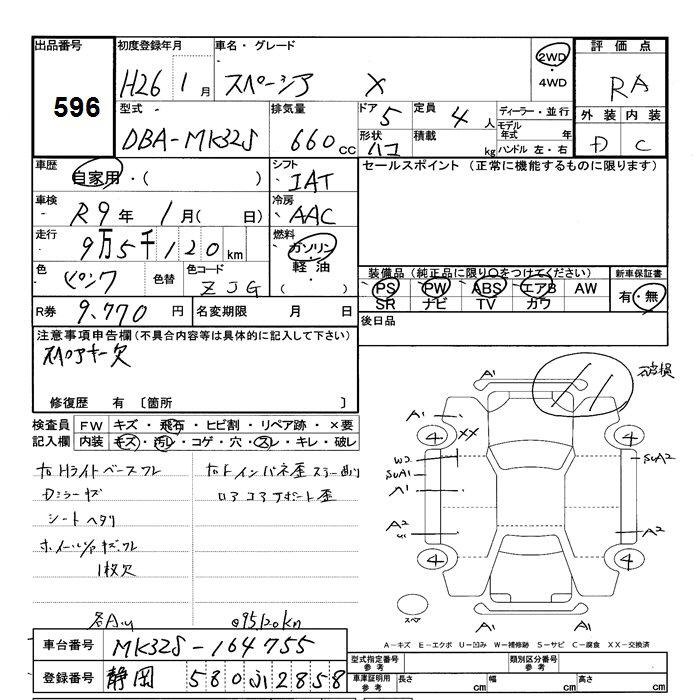 出品番号
596
初度登録年月
H26 1月
車名・グレード
スペーシア X
2WD
・
4WD
評価点
RA
外装 内装
D C
型式
DBA-MK32S
排気量
660cc
ドア 5
形状 ハコ
定員 4人
積載 kg
ディーラー・並行
モデル年式 年
ハンドル 左・右
車歴
自家用・( )
シフト
IAT
セールスポイント (正常に機能するものに限ります)
車検
R9年 1月( 日)
冷房
AAC
走行
9万5千120km
燃料
ガソリン
・
軽油
色 ピンク
色替
色コード ZJG
( )
装備品(純正品に限り○をつけてください)
PS PW ABS エアB AW
SR ナビ TV カワ
新車保証書
有・無
R券 9,770円
名変期限 月 日
後日品
注意事項申告欄(不具合内容等は具体的に記入して下さい)
スペアキー欠
修復歴 有 〔箇所 〕
検査員記入欄
FW キズ・飛石・ヒビ割・リペア跡・×要
内装 キズ・汚レ・コゲ・穴・スレ・キレ・破レ
シートヘタリ
1枚欠
破損
A1
A1
4 XX 4
W2
SUA1
SUA2
A1
A2
A2
4 4
スペア
A1 A1
A-キズ E-エクボ U-凹み W-補修跡 S-サビ C-腐食 XX-交換済
車台番号 MK32S-164755
登録番号 静岡 580 ふ 2858
型式指定番号 参考
類別区分番号 参考
車庫証明用 参考
長さ cm 幅 cm 高さ cm